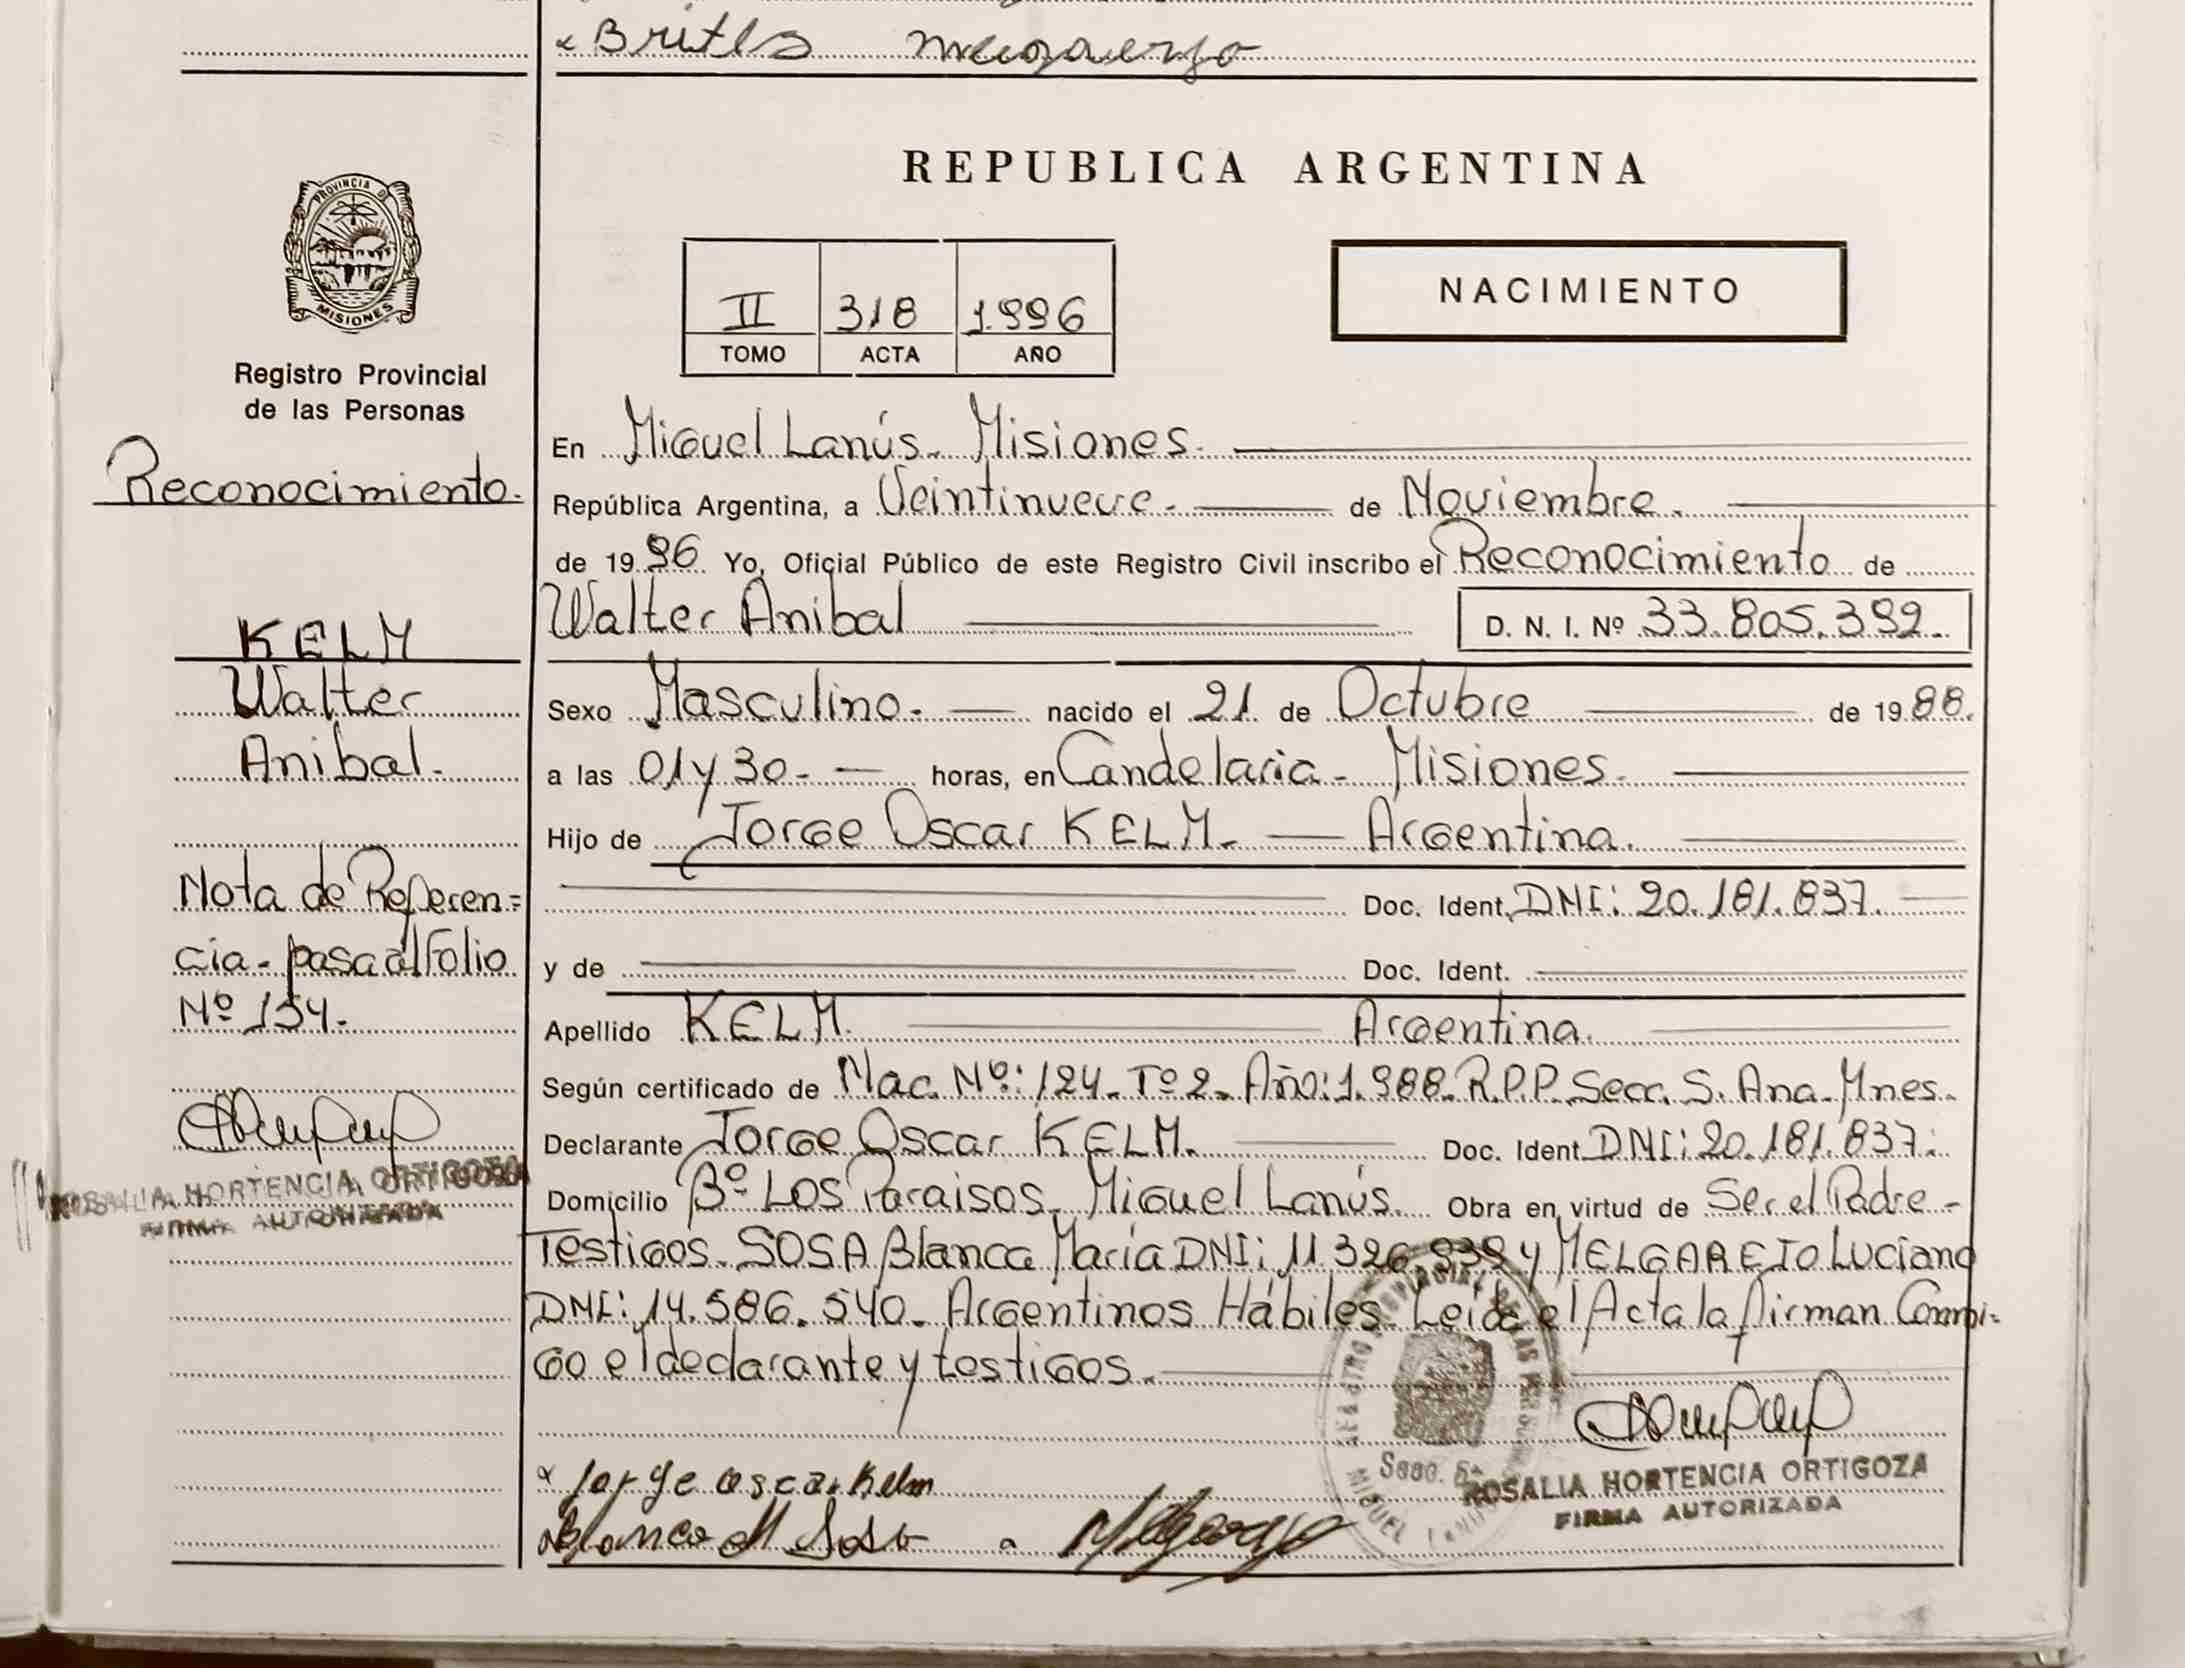 Britls
REPUBLICA ARGENTINA
PROVINCIA D
MISIONES
Registro Provincial
de las Personas
II 318 1.996
TOMO ACTA AÑO
NACIMIENTO
Reconocimiento.
KELM
Walter
Anibal.
Nota de Referen=
cia - pasa al Folio
Nº 154.
ROSALIA HORTENCIA ORTIGOZA
FIRMA AUTORIZADA
En Miguel Lanús. Misiones.
República Argentina, a Veintinueve. de Noviembre.
de 1996 Yo, Oficial Público de este Registro Civil inscribo el Reconocimiento de
Walter Anibal D. N. I. Nº 33.805.392.
Sexo Masculino. nacido el 21 de Octubre de 1988.
a las 01 y 30. horas, en Candelaria - Misiones.
Hijo de Jorge Oscar KELM. Argentina.
Doc. Ident. DNI: 20.181.837.
y de Doc. Ident.
Apellido KELM. Argentina.
Según certificado de Nac. Nº: 124. Tº 2. Año: 1.988. R.P.P. Secc. S. Ana. Mnes.
Declarante Jorge Oscar KELM. Doc. Ident. DNI: 20.181.837.
Domicilio Bº Los Paraisos. Miguel Lanús. Obra en virtud de Ser el Padre -
Testigos. SOSA Blanca María DNI: 11.326.939 y MELGAREJO Luciano
DNI: 14.586.540. Argentinos Hábiles. Leida el Acta la firman Conmi-
go el declarante y testigos.
Jorge oscar Kelm
Blanca M Sosa
ROSALIA HORTENCIA ORTIGOZA
FIRMA AUTORIZADA